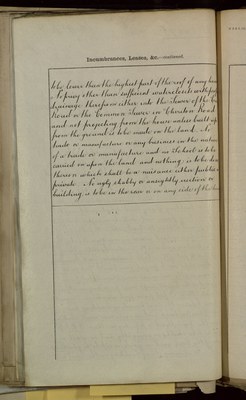 Encumbrances, Leases, &c.—continued.
to be lower than the highest part of the roof of any
No privy other than sufficient waterclosets with
drainage therefrom either into the Sewer of the
Road or the Common Sewer in Cheriton Road
and not projecting from the house unless built up
from the ground is to be made on the land. No
trade or manufacture or any business in the nature
of a trade or manufacture and no School is to be
carried on upon the land and nothing is to be
thereon which shall be a nuisance either public or
private. No ugly shabby or unsightly erection or
building is to be in the rear or on any side of the